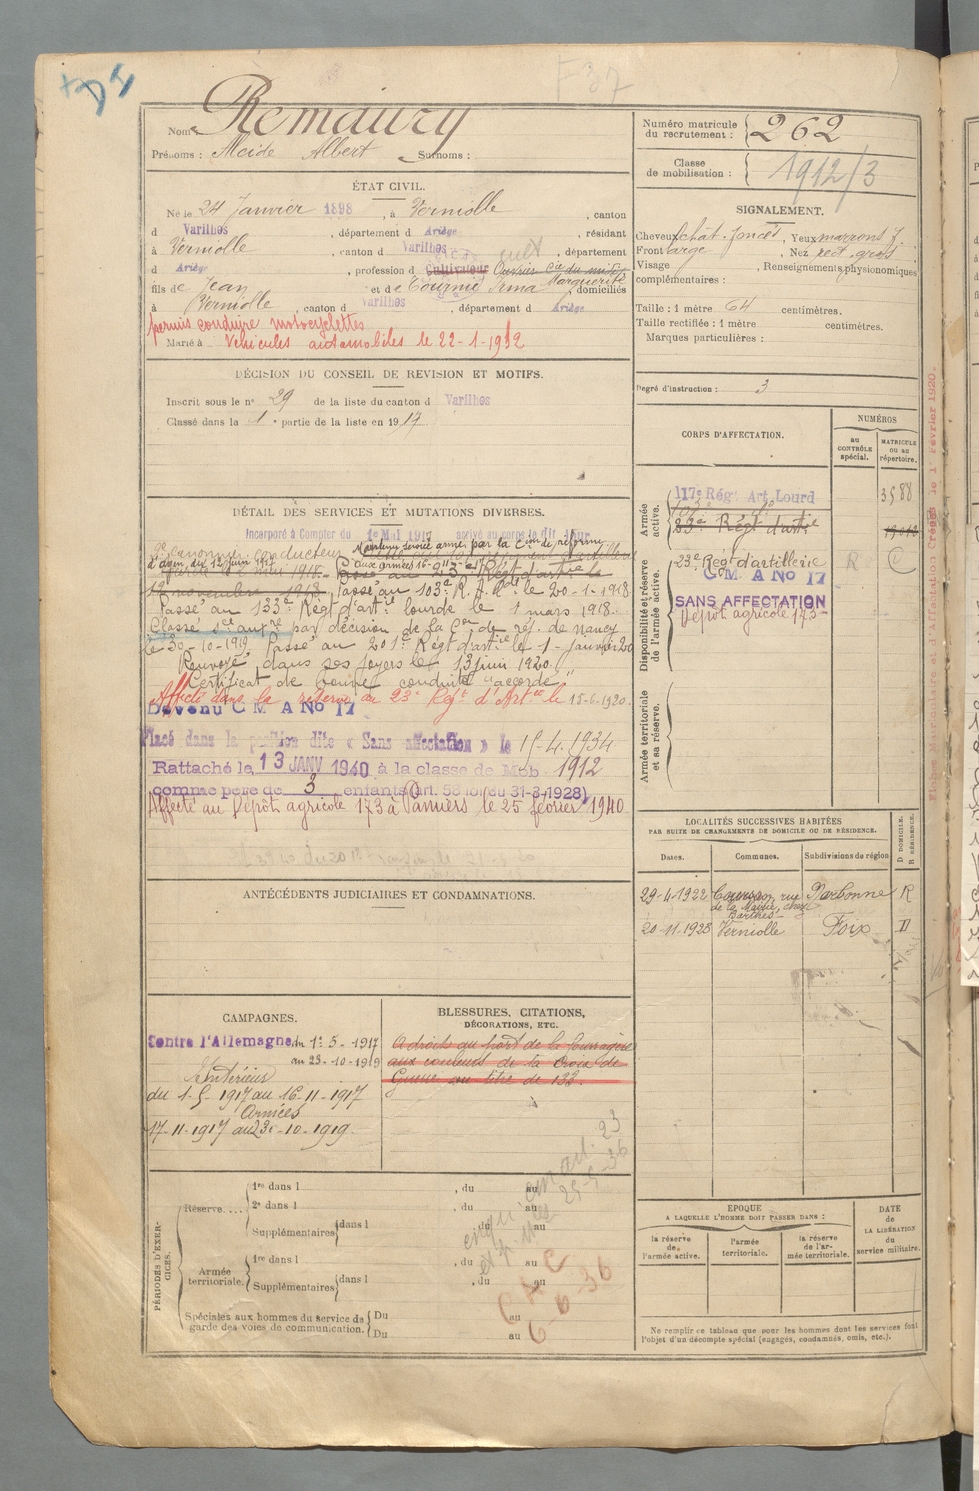 Nom : Remaury
Prénoms : Alcide Albert Surnoms :
Numéro matricule du recrutement : 262
Classe de mobilisation : 1912/3
ÉTAT CIVIL.
Né le 24 Janvier 1898, à Verniolle, canton
d Varilhes, département d Ariège, résidant
à Verniolle, canton d Varilhes, département
d Ariège, profession d Cultivateur Ouvrier Cie du midi
fils de Jean et de Tournié Irma Marguerite domiciliés
à Verniolle, canton d Varilhes, département d Ariège
permis conduire motocyclettes
Marié à Véhicules automobiles le 22-1-1932
SIGNALEMENT.
Cheveux chât. foncés, Yeux marrons f
Front large, Nez rect. gros
Visage, Renseignements physionomiques
complémentaires :
Taille : 1 mètre 64 centimètres.
Taille rectifiée : 1 mètre centimètres.
Marques particulières :
Degré d'instruction : 3
DÉCISION DU CONSEIL DE REVISION ET MOTIFS.
Inscrit sous le n° 29 de la liste du canton d Varilhes
Classé dans la 1e partie de la liste en 1917
DÉTAIL DES SERVICES ET MUTATIONS DIVERSES.
Incorporé à Compter du 1er Mai 1917 arrivé au corps le dit jour
2e canonnier conducteur Maintenu service armé par la Con de réforme
d'Agen du 12 juin 1917
aux armées 16-11-17
Passé au 23e Régt d'artie le
17 novembre 1918. Passé au 103e R. A. Lde le 20-1-1918
Passé au 133e Régt d'artie lourde le 1 mars 1918.
Classé sce auxre par décision de la Con de réf. de Nancy
le 30-10-1919. Passé au 201e Régt d'artie le 1 Janvier 20
Renvoyé dans ses foyers le 13 juin 1920.
Certificat de bonne conduite "accordé"
Affecté dans la réserve au 23e Régt d'Artie le 15-6-1920.
Devenu C M A No 17
Placé dans la position dite « Sans affectation » le 15-4-1934
Rattaché le 13 JANV 1940 à la classe de Mob 1912
comme père de 3 enfants (art. 58 loi du 31-3-1928)
Affecté au Dépôt agricole 173 à Pamiers le 25 février 1940
CORPS D'AFFECTATION.
NUMÉROS
au CONTRÔLE spécial.
MATRICULE ou au répertoire.
Armée active.
117e Régt Art Lourd 3588
Disponibilité et réserve de l'armée active.
23e Régt d'artillerie
C. M. A No 17
SANS AFFECTATION
Dépôt agricole 173
Armée territoriale et sa réserve.
ANTÉCÉDENTS JUDICIAIRES ET CONDAMNATIONS.
LOCALITÉS SUCCESSIVES HABITÉES
PAR SUITE DE CHANGEMENTS DE DOMICILE OU DE RÉSIDENCE.
Dates. Communes. Subdivisions de région D. DOMICILE. R. RÉSIDENCE.
29-4-1922 Coursan, rue de la Mairie, chez Barthes Narbonne R
20-11-1928 Verniolle Foix D
CAMPAGNES.
Contre l'Allemagne du 1-5-1917
au 23-10-1919
Intérieur
du 1-5-1917 au 16-11-1917
Armées
17-11-1917 au 23-10-1919.
BLESSURES, CITATIONS,
DÉCORATIONS, ETC.
A droit au port de la fourragère
aux couleurs de la Croix de
Guerre au titre du 133
PÉRIODES D'EXERCICES.
Réserve.... 1re dans l, du au
2e dans l, du au
Supplémentaires dans l, du au
Armée territoriale. 1re dans l, du au
Supplémentaires dans l, du au
Spéciales aux hommes du service de garde des voies de communication. Du au
Du au
C A C
6-6-36
EPOQUE
A LAQUELLE L'HOMME DOIT PASSER DANS :
la réserve de l'armée active.
l'armée territoriale.
la réserve de l'armée territoriale.
DATE de LA LIBÉRATION du service militaire.
Ne remplir ce tableau que pour les hommes dont les services font
l'objet d'un décompte spécial (engagés, condamnés, omis, etc.).